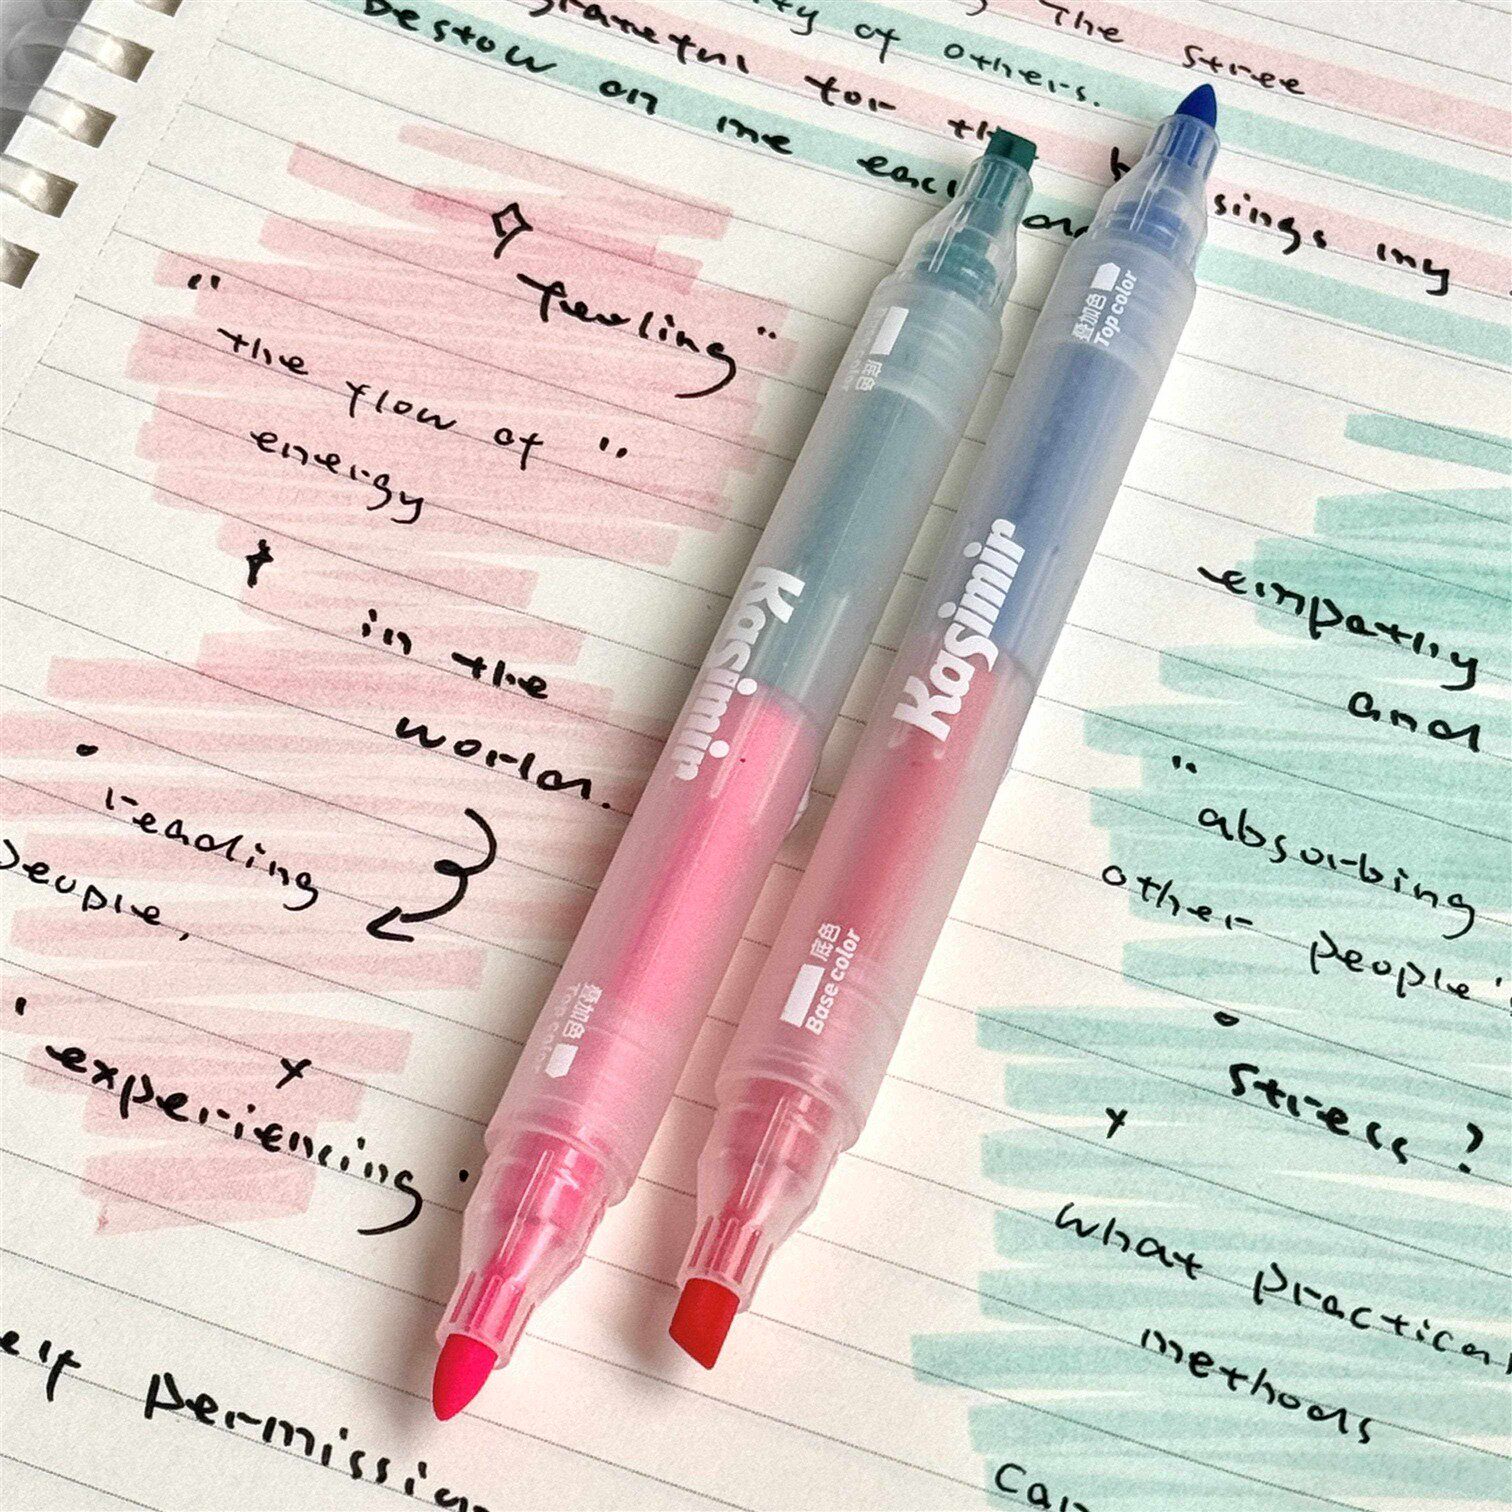 The stree
ty of others.
grateful for the
sings my
Bestow on me each
"feeling"
"the flow of"
energy
in the
world.
reading
people,
experiencing.
elf permission
empathy
and
"absorbing
other people"
stress?
what practical
methods
Can
Kasimir
叠加色
Top color
底色
Base color
Kasimir
叠加色
Top color
底色
color